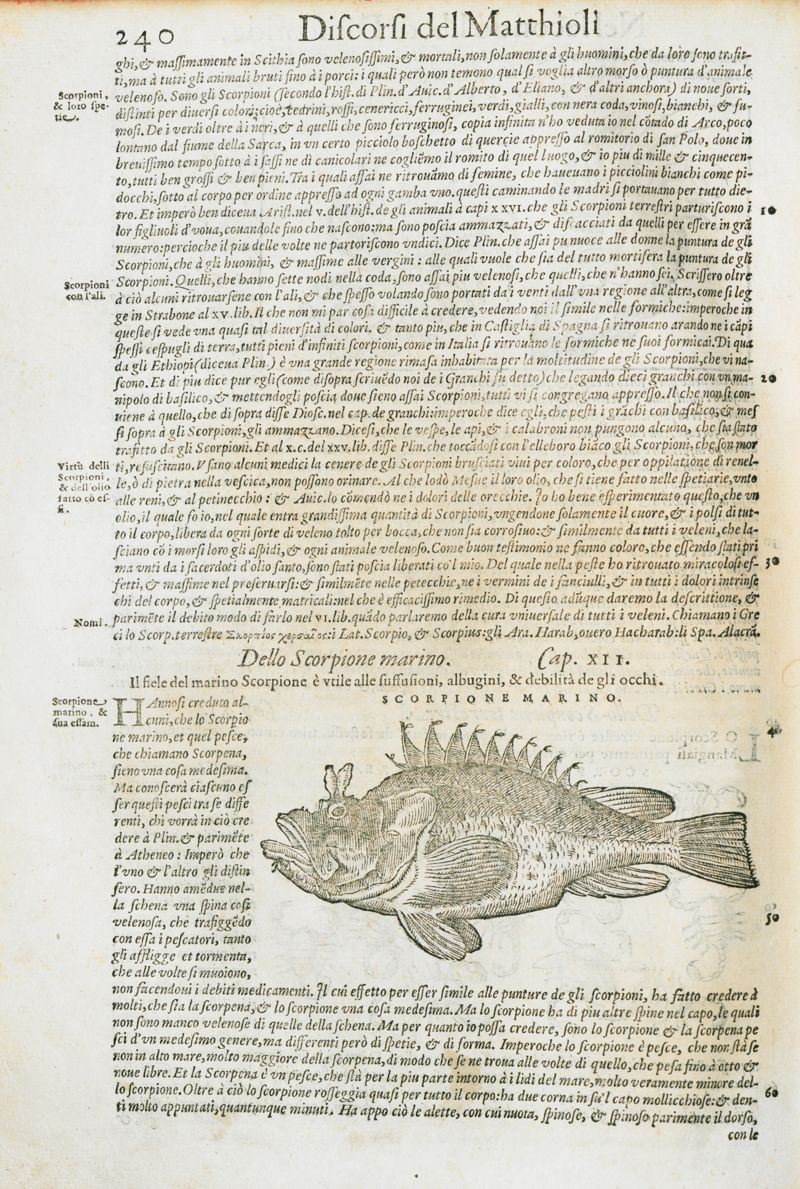 240 Discorsi del Matthioli
ghi, & massimamente in Scithia sono velenosissimi, & mortali, non solamente à gli huomini, che da loro sono trafit-
ti, ma à tutti gli animali bruti sino à i porci: i quali però non temono qual si voglia altro morso ò puntura d'animale
Scorpioni,
& loro spe-
tie.
velenoso. Sono gli Scorpioni (secondo l'hist. di Plin. d'Auic. d'Alberto, d'Eliano, & d'altri anchora) di noue sorti,
distinti per diuersi colori; cioè, rossi, cenericci, ferruginei, verdi, gialli, con nera coda, vinosi, bianchi, & fu-
mosi. De i verdi oltre à i neri, & à quelli che sono ferruginosi, copia infinita n'ho veduta io nel cōtado di Arco, poco
lontano dal fiume della Sarca, in vn certo picciolo boschetto di quercie appresso al romitorio di san Polo, doue in
breuissimo tempo sotto à i sassi ne di canicolari ne cogliemo il romito di quel luogo, & io piu di mille & cinquecen-
to, tutti ben grossi & ben pieni. Tra i quali assai ne ritrouāmo di femine, che haueuano i picciolini bianchi come pi-
docchi, sotto al corpo per ordine appresso ad ogni gamba vno. questi caminando le madri si portauano per tutto die-
tro. Et imperò ben diceua Arist. nel v. dell'hist. de gli animali à capi xxvi. che gli Scorpioni terrestri parturiscono i 10
lor figliuoli d'voua, couandole fino che nascono: ma sono poscia ammazzati, & discacciati da quelli per essere in grā
numero: percioche il piu delle volte ne partoriscono vndici. Dice Plin. che assai pu nuoce alle donne la puntura de gli
Scorpioni, che à gli huomini, & massime alle vergini: alle quali vuole che sia del tutto mortifera la puntura de gli
Scorpioni
con l'ali.
Scorpioni. Quelli, che hanno sette nodi nella coda, sono assai piu velenosi, che quelli, che n'hanno sei. Scrissero oltre
à ciò alcuni ritrouarsene con l'ali, & che spesso volando sono portati da i venti dall'vna regione all'altra, come si leg
ge in Strabone al xv. lib. Il che non mi par cosa difficile à credere, vedendo noi il simile nelle formiche: imperoche in
queste si vede vna quasi tal diuersità di colori. & tanto piu, che in Castiglia di Spagna si ritrouano arando ne i cāpi
spessi cespugli di terra, tutti pieni d'infiniti scorpioni, come in Italia si ritrouano le formiche ne suoi formicai. Di qua
da gli Ethiopi (diceua Plin.) è vna grande regione rimasa inhabitata per la moltitudine de gli Scorpioni, che vi na-
scono. Et di piu dice pur egli (come disopra scriuēdo noi de i Granchi fu detto) che legando dieci granchi con vn ma- 20
nipolo di basilico, & mettendogli poscia doue sieno assai Scorpioni, tutti vi si congregano appresso. Il che non si con-
uiene à quello, che di sopra disse Diosc. nel cap. de granchi: imperoche dice egli, che pesti i grāchi con basilico, & mes
si sopra à gli Scorpioni, gli ammazzano. Dicesi, che le vespe, le api, & i calabroni non pungono alcuno, che sia stato
trafitto da gli Scorpioni. Et al x. c. del xxv. lib. disse Plin. che toccādosi con l'elleboro biāco gli Scorpioni, che son mor
Virtù delli
Scorpioni,
& dell'olio
fatto cō es-
si.
ti, resuscitano. Vsano alcuni medici la cenere de gli Scorpioni brusciati viui per coloro, che per oppilatione di renel-
le, ò di pietra nella vescica, non possono orinare. Al che lodò Mesue il loro olio, che si tiene fatto nelle spetiarie, vnto
alle reni, & al petinecchio: & Auic. lo cōmendò ne i dolori delle orecchie. Io ho bene esperimentato questo, che vn
olio, il quale fo io, nel quale entra grandissima quantità di Scorpioni, vngendone solamente il cuore, & i polsi di tut-
to il corpo, libera da ogni sorte di veleno tolto per bocca, che non sia corrosiuo: & similmente da tutti i veleni, che la-
sciano cō i morsi loro gli aspidi, & ogni animale velenoso. Come buon testimonio ne fanno coloro, che essendo stati pri
ma vnti da i sacerdoti d'olio santo, sono stati poscia liberati co'l mio. Del quale nella peste ho ritrouato miracolosi ef- 30
fetti, & massime nel preseruarsi: & similmēte nelle petecchie, ne i vermini de i fanciulli, & in tutti i dolori intrinse
chi del corpo, & spetialmente matricali: nel che è efficacissimo rimedio. Di questo adūque daremo la descrittione, &
Nomi.
parimēte il debito modo di farlo nel vi. lib. quando parlaremo della cura vniuersale di tutti i veleni. Chiamano i Gre
ci lo Scorp. terrestre Σκορπίος χερσαῖος: i Lat. Scorpio, & Scorpius: gli Ara. Harab, ouero Hacharab: li Spa. Alacrā.
Dello Scorpione marino. Cap. XII.
Il fiele del marino Scorpione è vtile alle suffusioni, albugini, & debilità de gli occhi.
SCORPIONE MARINO.
Scorpione
marino, &
sua essam.
HAnnosi creduto al-
cuni, che lo Scorpio
ne marino, et quel pesce,
che chiamano Scorpena,
sieno vna cosa medesima.
Ma conoscerà ciascuno es
ser questi pesci tra se diffe
renti, chi vorrà in ciò cre
dere à Plin. & parimēte
à Atheneo: Imperò che
l'vno & l'altro gli distin
sero. Hanno amēdue nel-
la schena vna spina cosi
velenosa, che trafiggēdo
con essa i pescatori, tanto
gli affligge et tormenta,
che alle volte si muoiono,
40
50
non facendoui i debiti medicamenti. Il cui effetto per esser simile alle punture de gli scorpioni, ha fatto credere à
molti, che sia la scorpena, & lo scorpione vna cosa medesima. Ma lo scorpione ha di piu altre spine nel capo, le quali
non sono manco velenose di quelle della schena. Ma per quanto io possa credere, sono lo scorpione & la scorpena pe
sci d'vn medesimo genere, ma differenti però di spetie, & di forma. Imperoche lo scorpione è pesce, che non stà se
non in alto mare, molto maggiore della scorpena, di modo che se ne troua alle volte di quello, che pesa fino à otto &
noue libre. Et la Scorpena è vn pesce, che stà per la piu parte intorno à i lidi del mare, molto veramente minore del-
lo scorpione. Oltre à ciò lo scorpione rosseggia quasi per tutto il corpo: ha due corna in su'l capo mollicchiose: & den- 60
ti molto appuntati, quantunque minuti. Ha appo ciò le alette, con cui nuota, spinose, & spinoso parimente il dorso,
con le